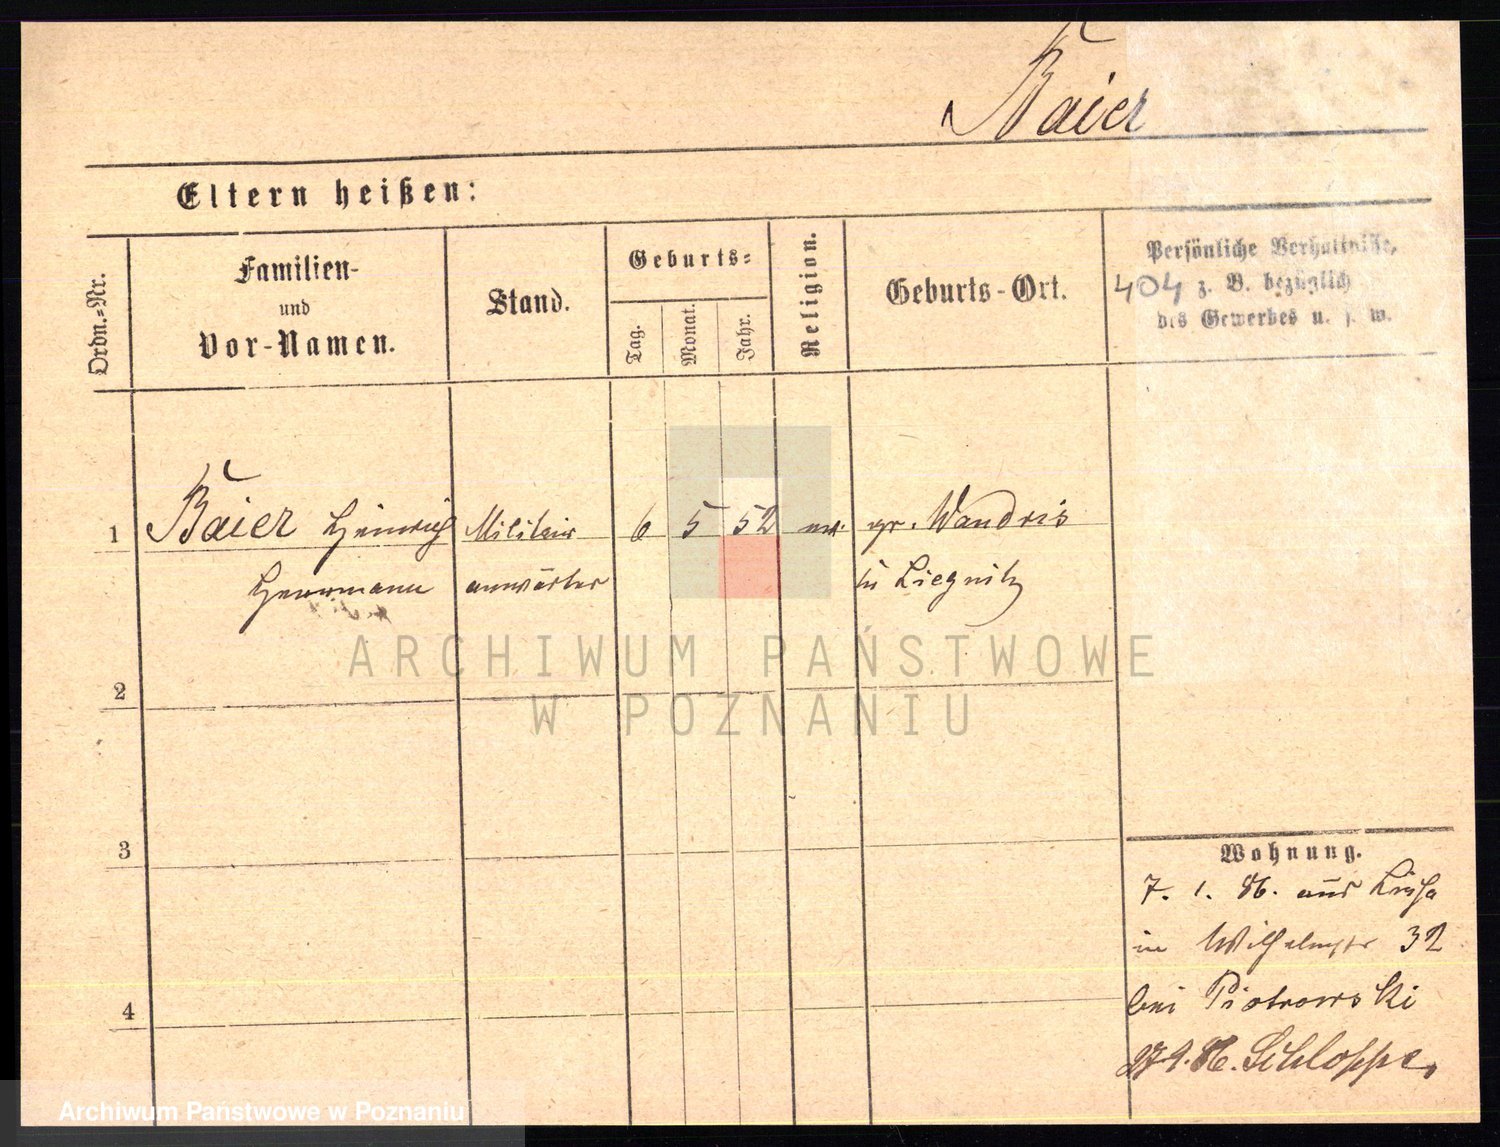 Baier
Eltern heißen:
Ordn.-Nr.
Familien-
und
Vor-Namen.
Stand.
Geburts-
Tag.
Monat.
Jahr.
Religion.
Geburts-Ort.
Persönliche Verhältnisse,
404 z. B. bezüglich
des Gewerbes u. s. w.
1
Baier Heinrich
Herrmann
Militair
anwärter
6
5
52
ev.
gr. Wandris
in Liegnitz
ARCHIWUM PAŃSTWOWE
W POZNANIU
2
3
4
Wohnung.
7. 1. 86. aus Lissa
in Wilhelmstr 32
bei Piotrowski
27.9.86. Schloppe.
Archiwum Państwowe w Poznaniu